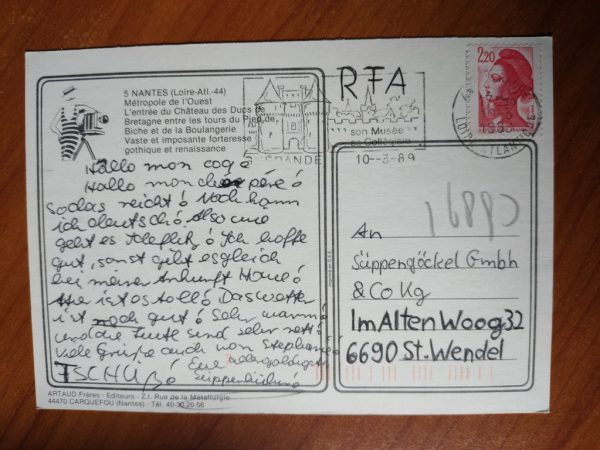 5 NANTES (Loire-Atl.-44)
Métropole de l'Ouest
L'entrée du Château des Ducs de
Bretagne entre les tours du Pied de
Biche et de la Boulangerie
Vaste et imposante forteresse
gothique et renaissance
RFA
2,20
son Musée
sa Collégiale
GUÉRANDE
10--3-89
Hallo mon coq
Hallo mon cher père
sodas reicht! Noch kann
ich deutsch! Also wie
geht es ! Ich hoffe
gut, sonst gibt es gleich
bei meiner Ankunft Haue!
ist es toll! Das wetter
ist noch gut! Sehr warm
und die Leute sind sehr nett!
Viele Grüße auch von Stephanie
TSCHÜß! Eure
An
Süppengöckel Gmbh
& Co Kg
Im Alten Woog 32
6690 St. Wendel
ARTAUD Frères - Editeurs - Z.I. Rue de la Métallurgie
44470 CARQUEFOU (Nantes) - Tél. 40-30-26-56